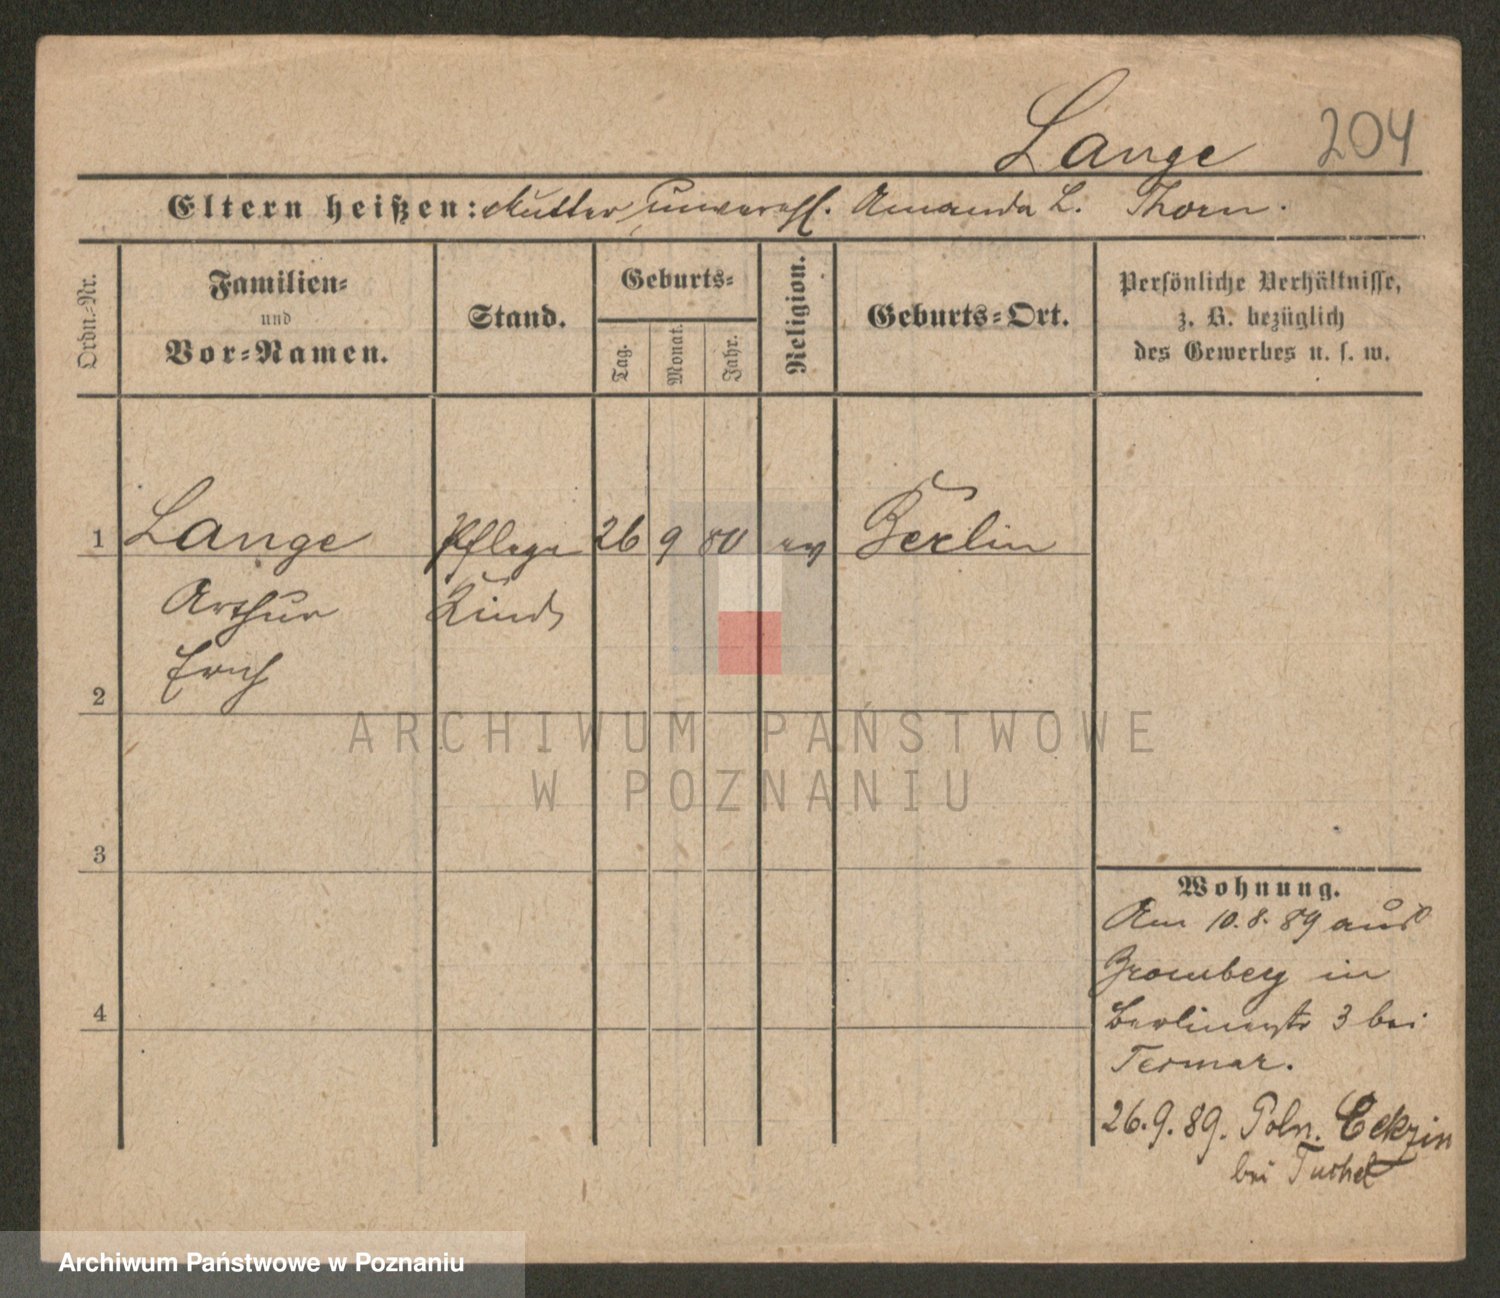 Lange 204
Eltern heißen: Mutter, unverehl. Amanda L. Thorn.
Ordn.-Nr.
Familien-
und
Vor-Namen.
Stand.
Geburts-
Tag.
Monat.
Jahr.
Religion.
Geburts-Ort.
Persönliche Verhältnisse,
z. B. bezüglich
des Gewerbes u. s. w.
1 Lange Pflege 26 9 80 ev Berlin
Arthur Kind
Erich
2
ARCHIWUM PAŃSTWOWE
W POZNANIU
3
Wohnung.
Am 10.8.89 aus
Bromberg in
4
Berlinerstr 3 bei
Termar.
26.9.89. Poln. Cekzin
bei Tuchel
Archiwum Państwowe w Poznaniu